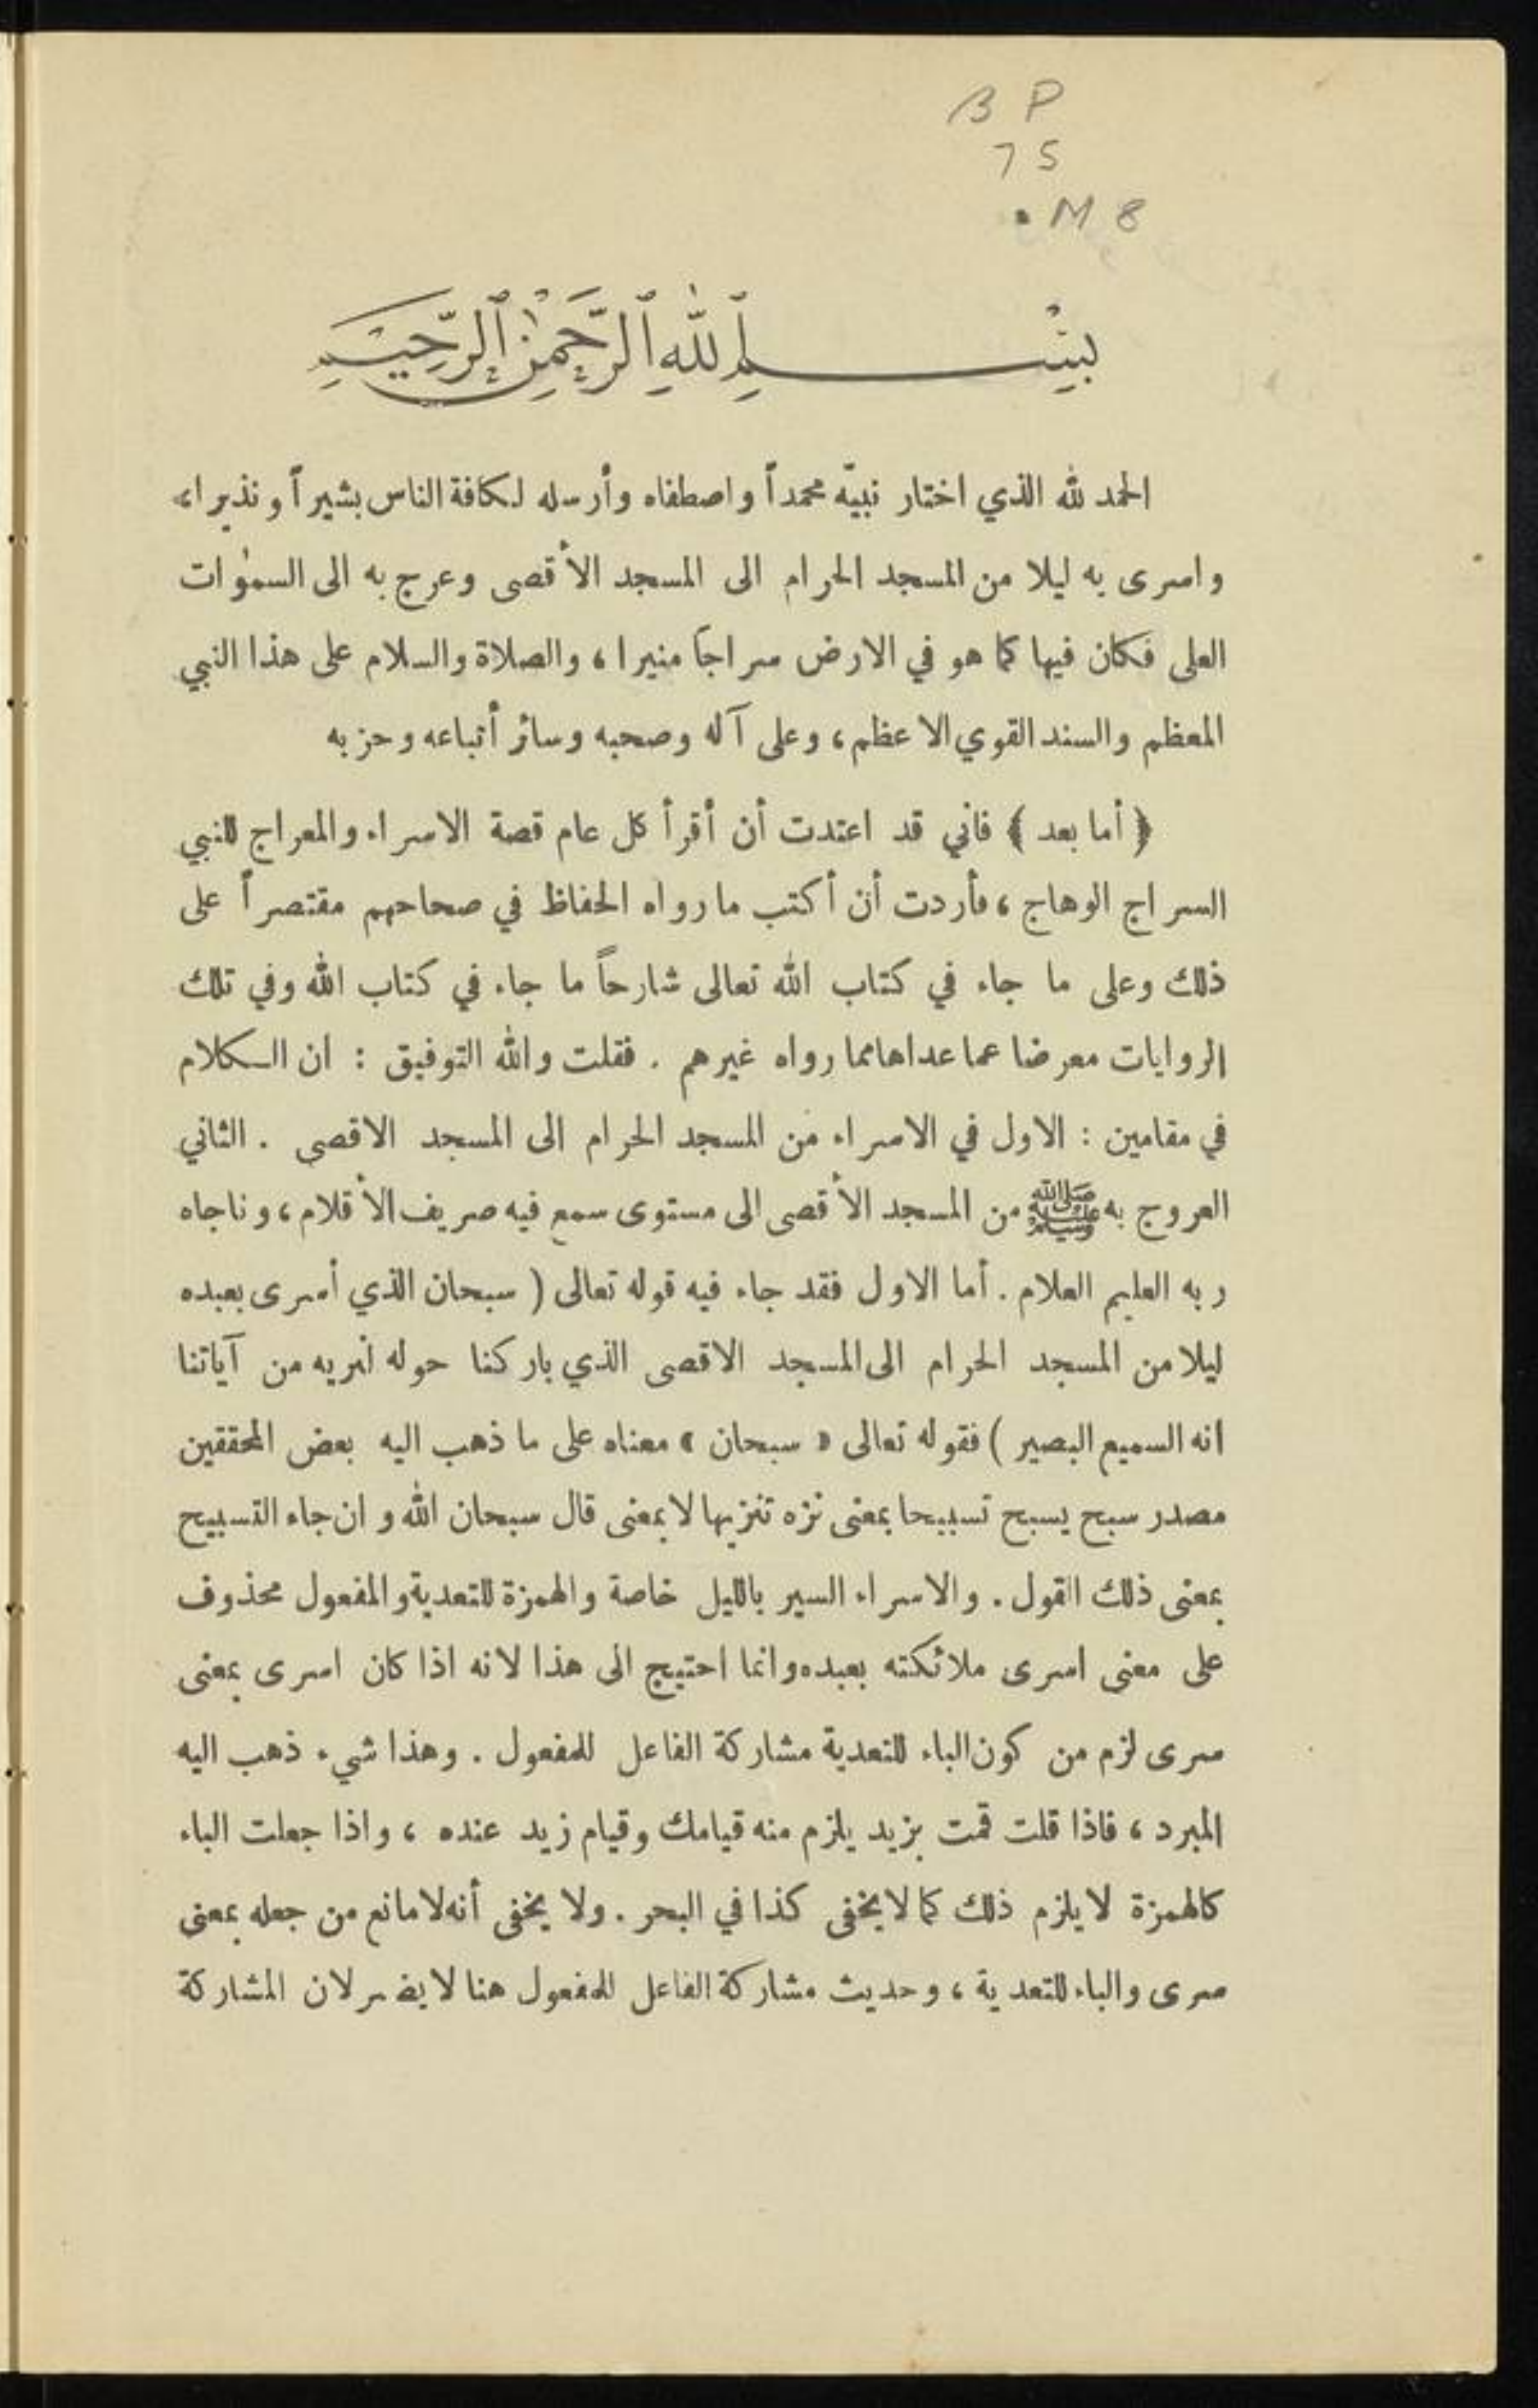 B P
75
.M8
بِسْمِ ٱللّٰهِ ٱلرَّحْمٰنِ ٱلرَّحِيمِ
الحمد لله الذي اختار نبيّه محمداً واصطفاه وأرسله لكافة الناس بشيراً ونذيرا،
واسرى به ليلا من المسجد الحرام الى المسجد الأقصى وعرج به الى السمٰوات
العلى فكان فيها كما هو في الارض سراجاً منيرا، والصلاة والسلام على هذا النبي
المعظم والسند القوي الاعظم، وعلى آله وصحبه وسائر أتباعه وحزبه
﴿ أما بعد ﴾ فاني قد اعتدت أن أقرأ كل عام قصة الاسراء والمعراج للنبي
السراج الوهاج، فأردت أن أكتب ما رواه الحفاظ في صحاحهم مقتصراً على
ذلك وعلى ما جاء في كتاب الله تعالى شارحاً ما جاء في كتاب الله وفي تلك
الروايات معرضا عما عداها مما رواه غيرهم . فقلت والله التوفيق : ان الكلام
في مقامين : الاول في الاسراء من المسجد الحرام الى المسجد الاقصى . الثاني
العروج به ﷺ من المسجد الأقصى الى مستوى سمع فيه صريف الأقلام، وناجاه
ربه العليم العلام . أما الاول فقد جاء فيه قوله تعالى ( سبحان الذي أسرى بعبده
ليلا من المسجد الحرام الى المسجد الاقصى الذي باركنا حوله لنريه من آياتنا
انه السميع البصير ) فقوله تعالى « سبحان » معناه على ما ذهب اليه بعض المحققين
مصدر سبح يسبح تسبيحا بمعنى نزه تنزيها لا بمعنى قال سبحان الله وان جاء التسبيح
بمعنى ذلك القول . والاسراء السير بالليل خاصة والهمزة للتعدية والمفعول محذوف
على معنى اسرى ملائكته بعبده وانما احتيج الى هذا لانه اذا كان اسرى بمعنى
سرى لزم من كون الباء للتعدية مشاركة الفاعل للمفعول . وهذا شيء ذهب اليه
المبرد، فاذا قلت قمت بزيد يلزم منه قيامك وقيام زيد عنده، واذا جعلت الباء
كالهمزة لا يلزم ذلك كما لا يخفى كذا في البحر . ولا يخفى أنه لا مانع من جعله بمعنى
سرى والباء للتعدية، وحديث مشاركة الفاعل للمفعول هنا لا يضر لان المشاركة